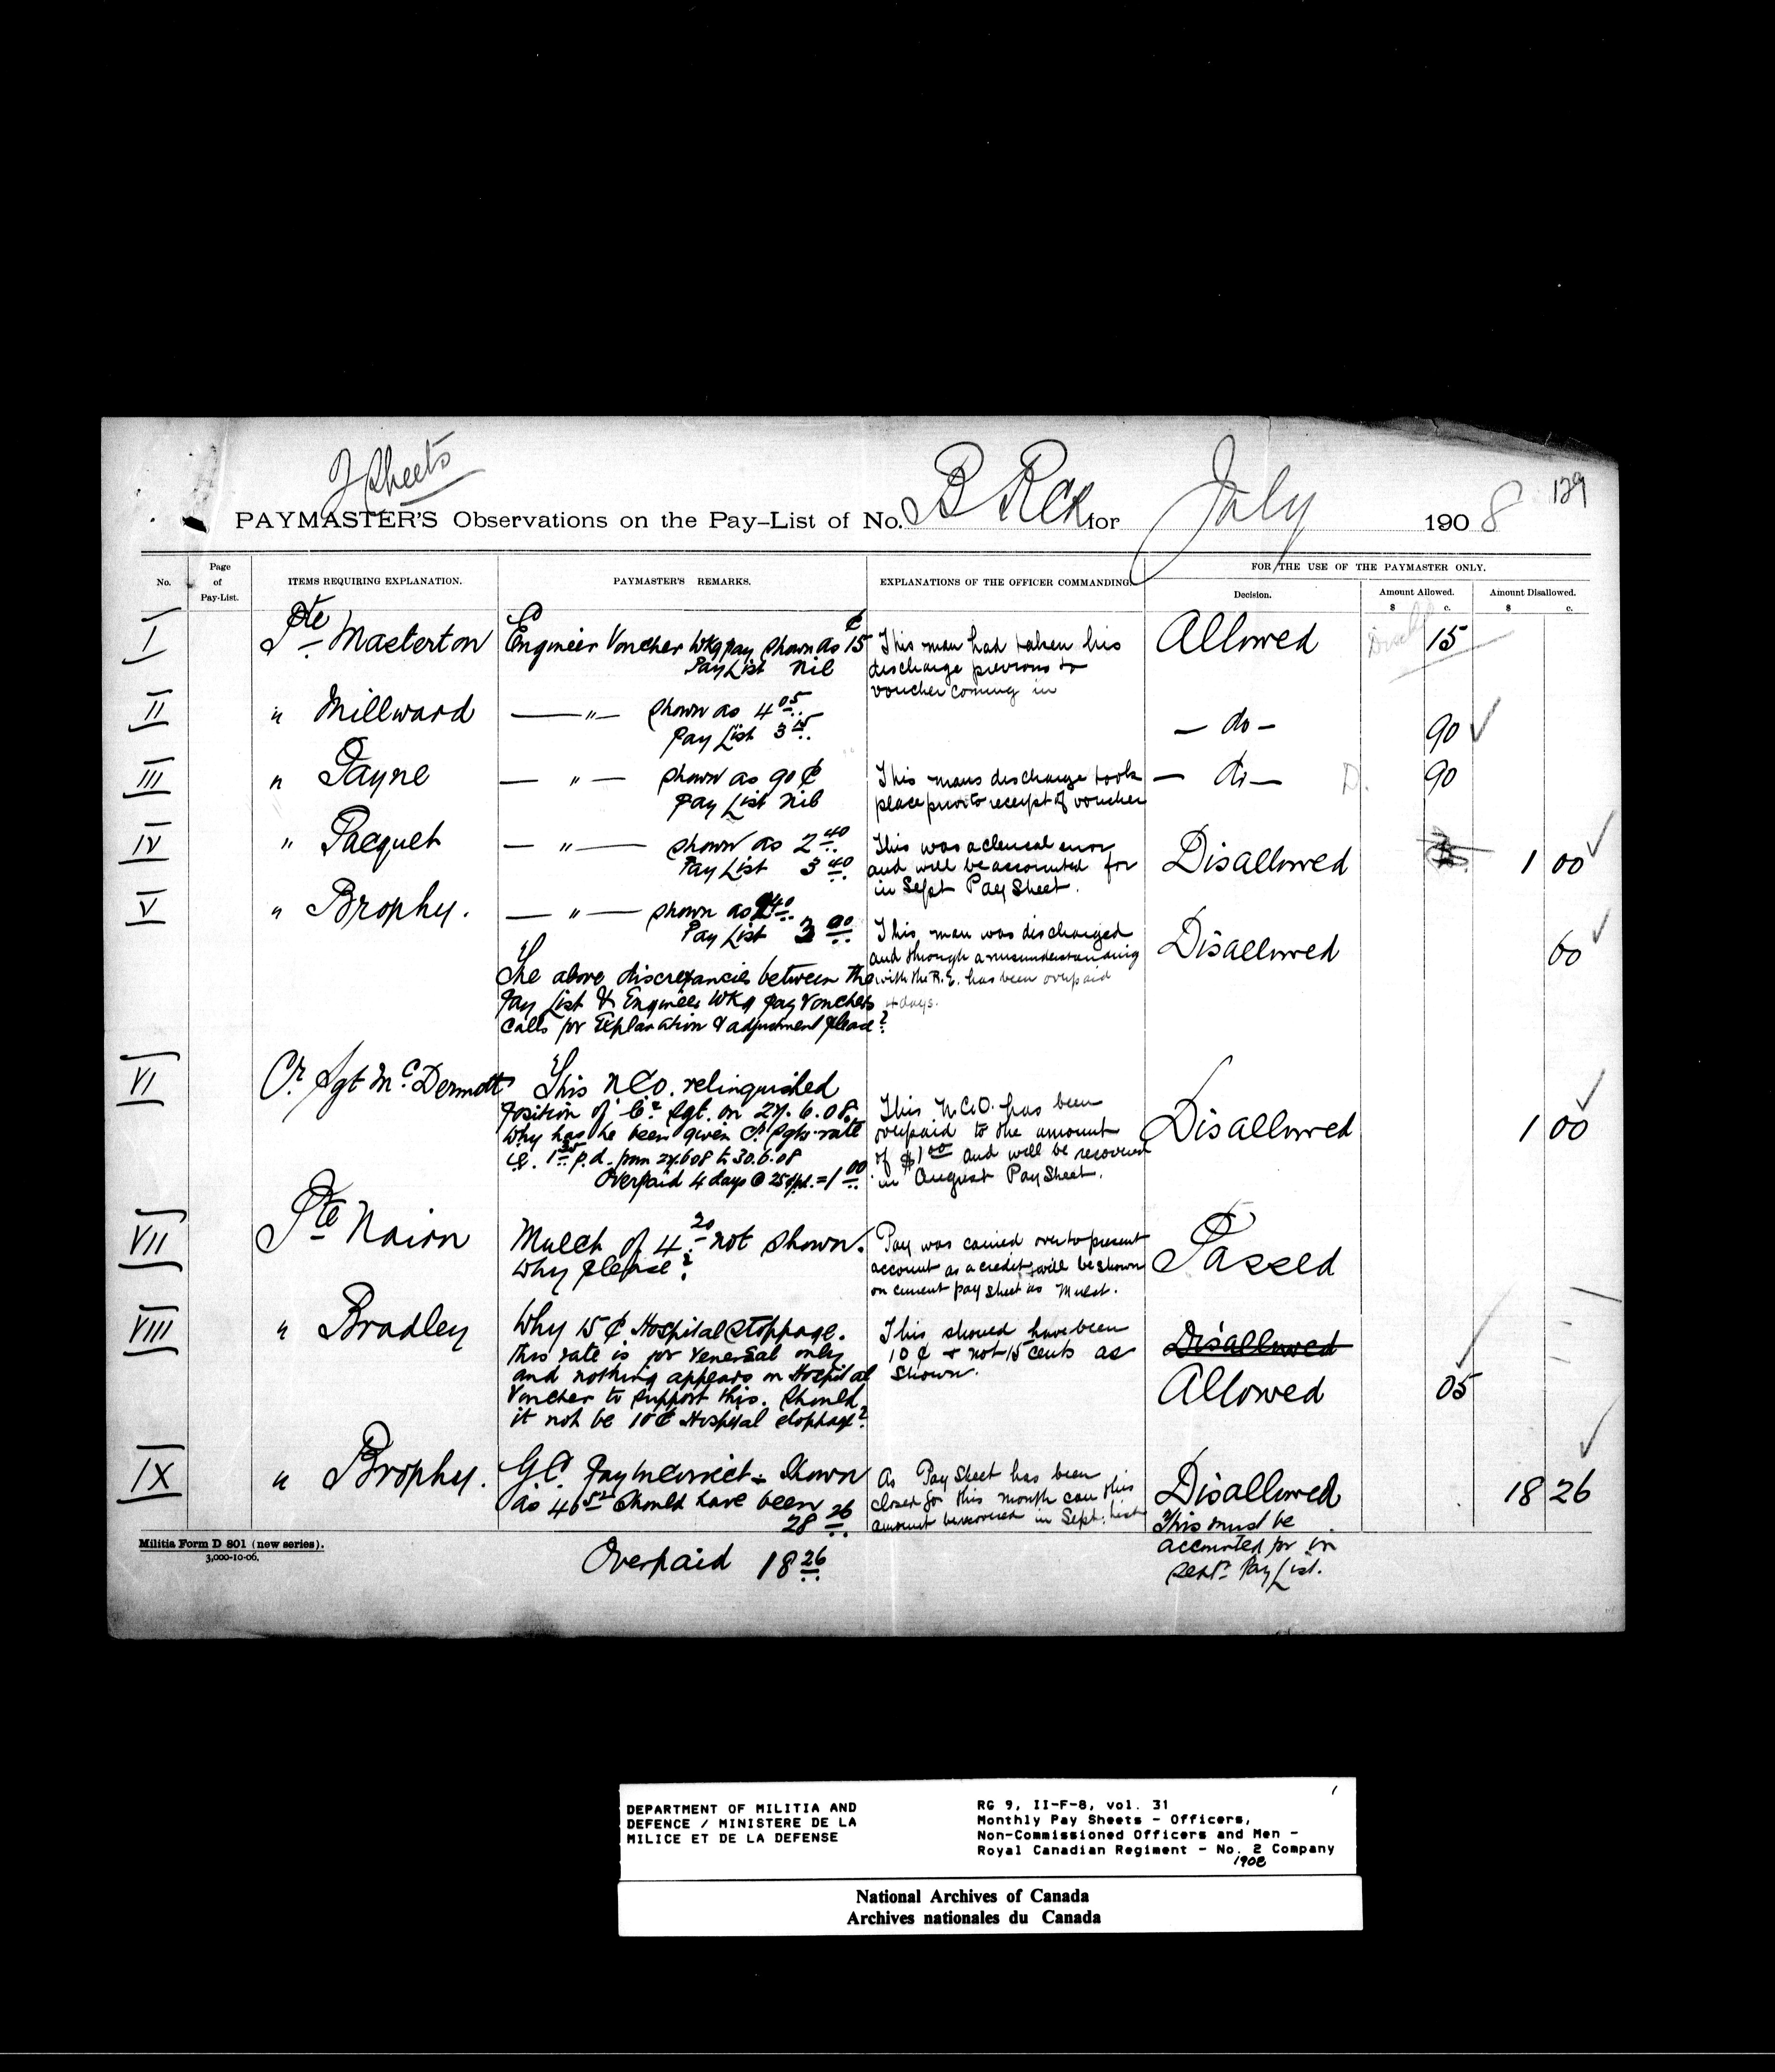 2 Sheets
129
PAYMASTER'S Observations on the Pay-List of No. B RCR for July 1908
No.
Page of Pay-List.
ITEMS REQUIRING EXPLANATION.
PAYMASTER'S REMARKS.
EXPLANATIONS OF THE OFFICER COMMANDING.
FOR THE USE OF THE PAYMASTER ONLY.
Decision.
Amount Allowed.
$ c.
Amount Disallowed.
$ c.
I
Pte Masterton
Engineer Voucher Wkg pay shown as 15 ¢
Pay List nil
This man had taken his
discharge previous to
voucher coming in
Allowed
15
II
" Millward
— " — shown as 4 05
Pay List 3 15
— do —
90
III
" Payne
— " — shown as 90 ¢
Pay List nil
This mans discharge took
place prior to receipt of voucher
— do —
D.
90
IV
" Pacquet
— " — shown as 2 40
Pay List 3 40
This was a clerical error
and will be accounted for
in Sept Pay Sheet.
Disallowed
1 00
V
" Brophy.
— " — shown as 2 40
Pay List 3 00
The above discrepancies between the
Pay List & Engineer Wkg Pay Vouchers
calls for Explanation & adjustment please?
This man was discharged
and through a misunderstanding
with the R.E. has been overpaid
4 days.
Disallowed
60
VI
Cr Sgt McDermott
This NCO. relinquished
position of Cr Sgt. on 27.6.08.
Why has he been given Cr Sgts rate
i.e. 1 35 p.d. from 27.6.08 to 30.6.08
Overpaid 4 days @ 25¢ pd. = 1 00
This N.C.O. has been
overpaid to the amount
of $1 00 and will be recovered
in August Pay Sheet.
Disallowed
1 00
VII
Pte Nairn
Mulct of 4 20 not shown.
Why please?
Pay was carried over to present
account as a credit & will be shown
on current pay sheet as Mulct.
Passed
VIII
" Bradley
Why 15 ¢ Hospital stoppage.
This rate is for Venereal only
and nothing appears on Hospital
Voucher to support this. Should
it not be 10 ¢ Hospital stoppage?
This should have been
10 ¢ & not 15 cents as
shown.
Disallowed
Allowed
05
IX
" Brophy.
G.C. Pay incorrect. Shown
as 46 52 should have been
28 26
Overpaid 18 26
As Pay Sheet has been
closed for this month can this
amount be recovered in Sept. list
Disallowed
This must be
accounted for in
Sept. Pay List.
18 26
Militia Form D 801 (new series).
3,000-10-06.
DEPARTMENT OF MILITIA AND
DEFENCE / MINISTERE DE LA
MILICE ET DE LA DEFENSE
RG 9, II-F-8, vol. 31
Monthly Pay Sheets - Officers,
Non-Commissioned Officers and Men -
Royal Canadian Regiment - No. 2 Company
1908
National Archives of Canada
Archives nationales du Canada